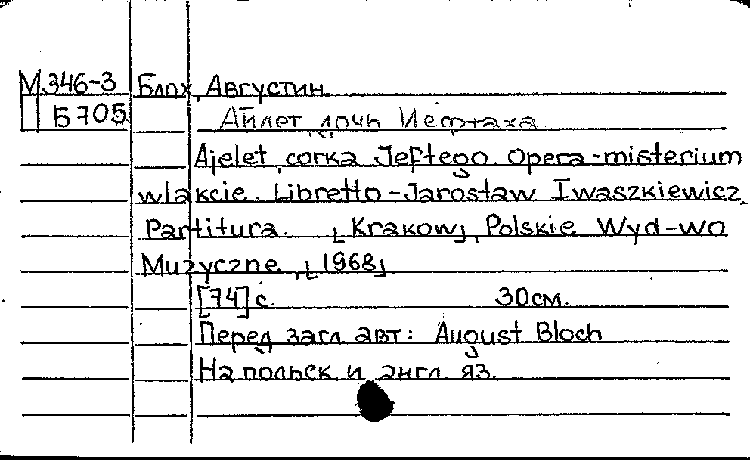 М346-3 Блох, Августин.
Б705 Айлет, дочь Иефтаха
Ajelet, corka Jeftego. Opera-misterium
w1akcie. Libretto-Jarosław Iwaszkiewicz.
Partitura. [Krakow], Polskie Wyd-wo
Muzyczne, [1968]
[74] с. 30см.
Перед загл. авт: August Bloch
На польск. и англ. яз.